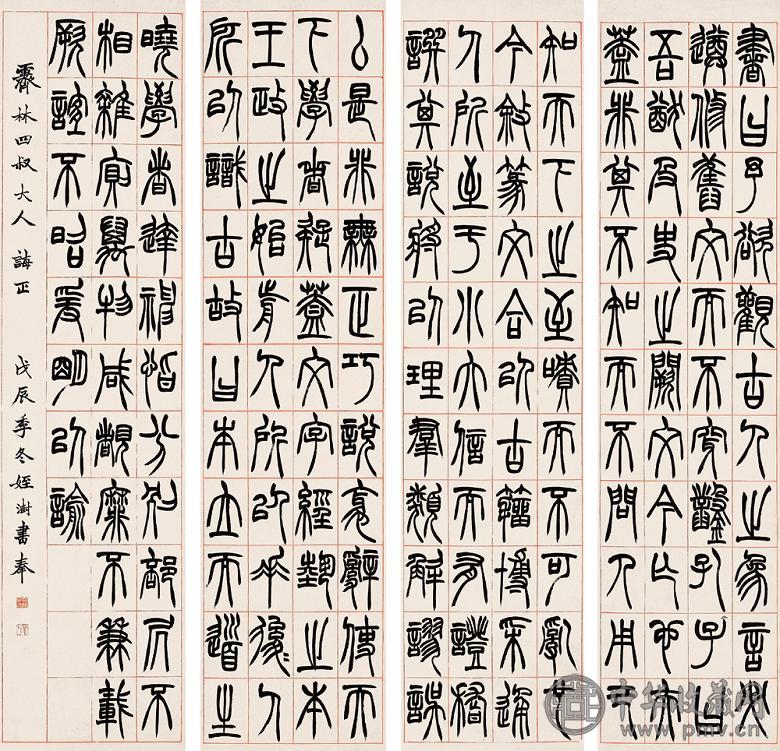 書曰予欲觀古人之象言必
遵修舊文而不穿鑿孔子曰
吾猷及史之闕文今亡也夫
蓋非其不知而不問人用己
知天下之至嘖而不可亂也
今敘篆文合以古籀博采通
人所至于小大信而有證稽
譔其說將以理羣類解謬誤
厶是非無正巧說衺辭使天
下學者疑蓋文字經藝之本
王政之始前人所以垂後〻人
所以識古故曰本立而道生
曉學者達神恉分別部居不
相雜廁萬物咸覩靡不兼載
厥誼不昭爰明以諭
林四叔大人 誨正 戊辰季冬姪澍書奉
中华收藏网
www.pmv.cn